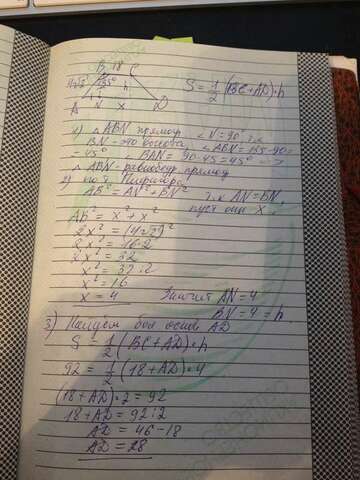 B 18 C
4√2 135° h
A N X D
S = 1/2 (BC + AD) · h
1) △ ABN прямоуг ∠N = 90° т.к
BN – это высота, ∠ABN = 135 - 90 =
= 45° ∠BAN = 90 - 45 = 45° =>
△ ABN – равнобедр прямоуг
2) по т Пифагора
AB² = AN² + BN² т.к AN = BN,
пусть они X.
AB² = x² + x²
2x² = (4√2)²
2x² = 16·2
2x² = 32
x² = 32 : 2
x² = 16
x = 4 Значит AN = 4
BN = 4 = h
3) Найдём бол основ AD
S = 1/2 (BC + AD) · h
92 = 1/2 (18 + AD) · 4
(18 + AD) · 2 = 92
18 + AD = 92 : 2
AD = 46 - 18
AD = 28